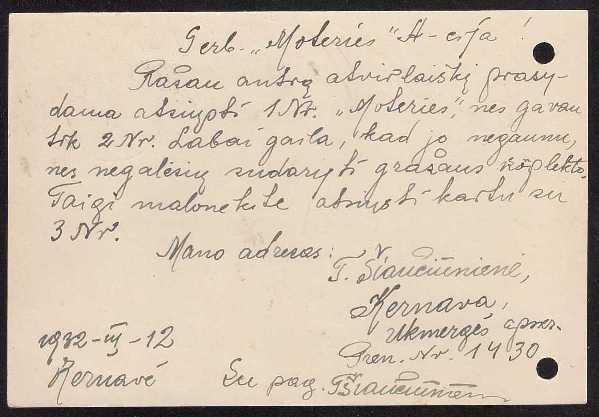 Gerb. „Moteries" A-cija!
Rašau antrą atvirlaiškį prašy-
dama atsiųsti 1 Nr. „Moteries", nes gavau
tik 2 Nr. Labai gaila, kad jo negaunu,
nes negalėsiu sudaryti gražaus komplekto.
Taigi malonėkite atsiųsti kartu su
3 Nr.
Mano adresas:
T. Šiaučiūnienė,
Kernava,
Ukmergės apskr.
Pren. Nr. 1430
1932-III-12
Kernavė
Su pag. TŠiaučiūnienė